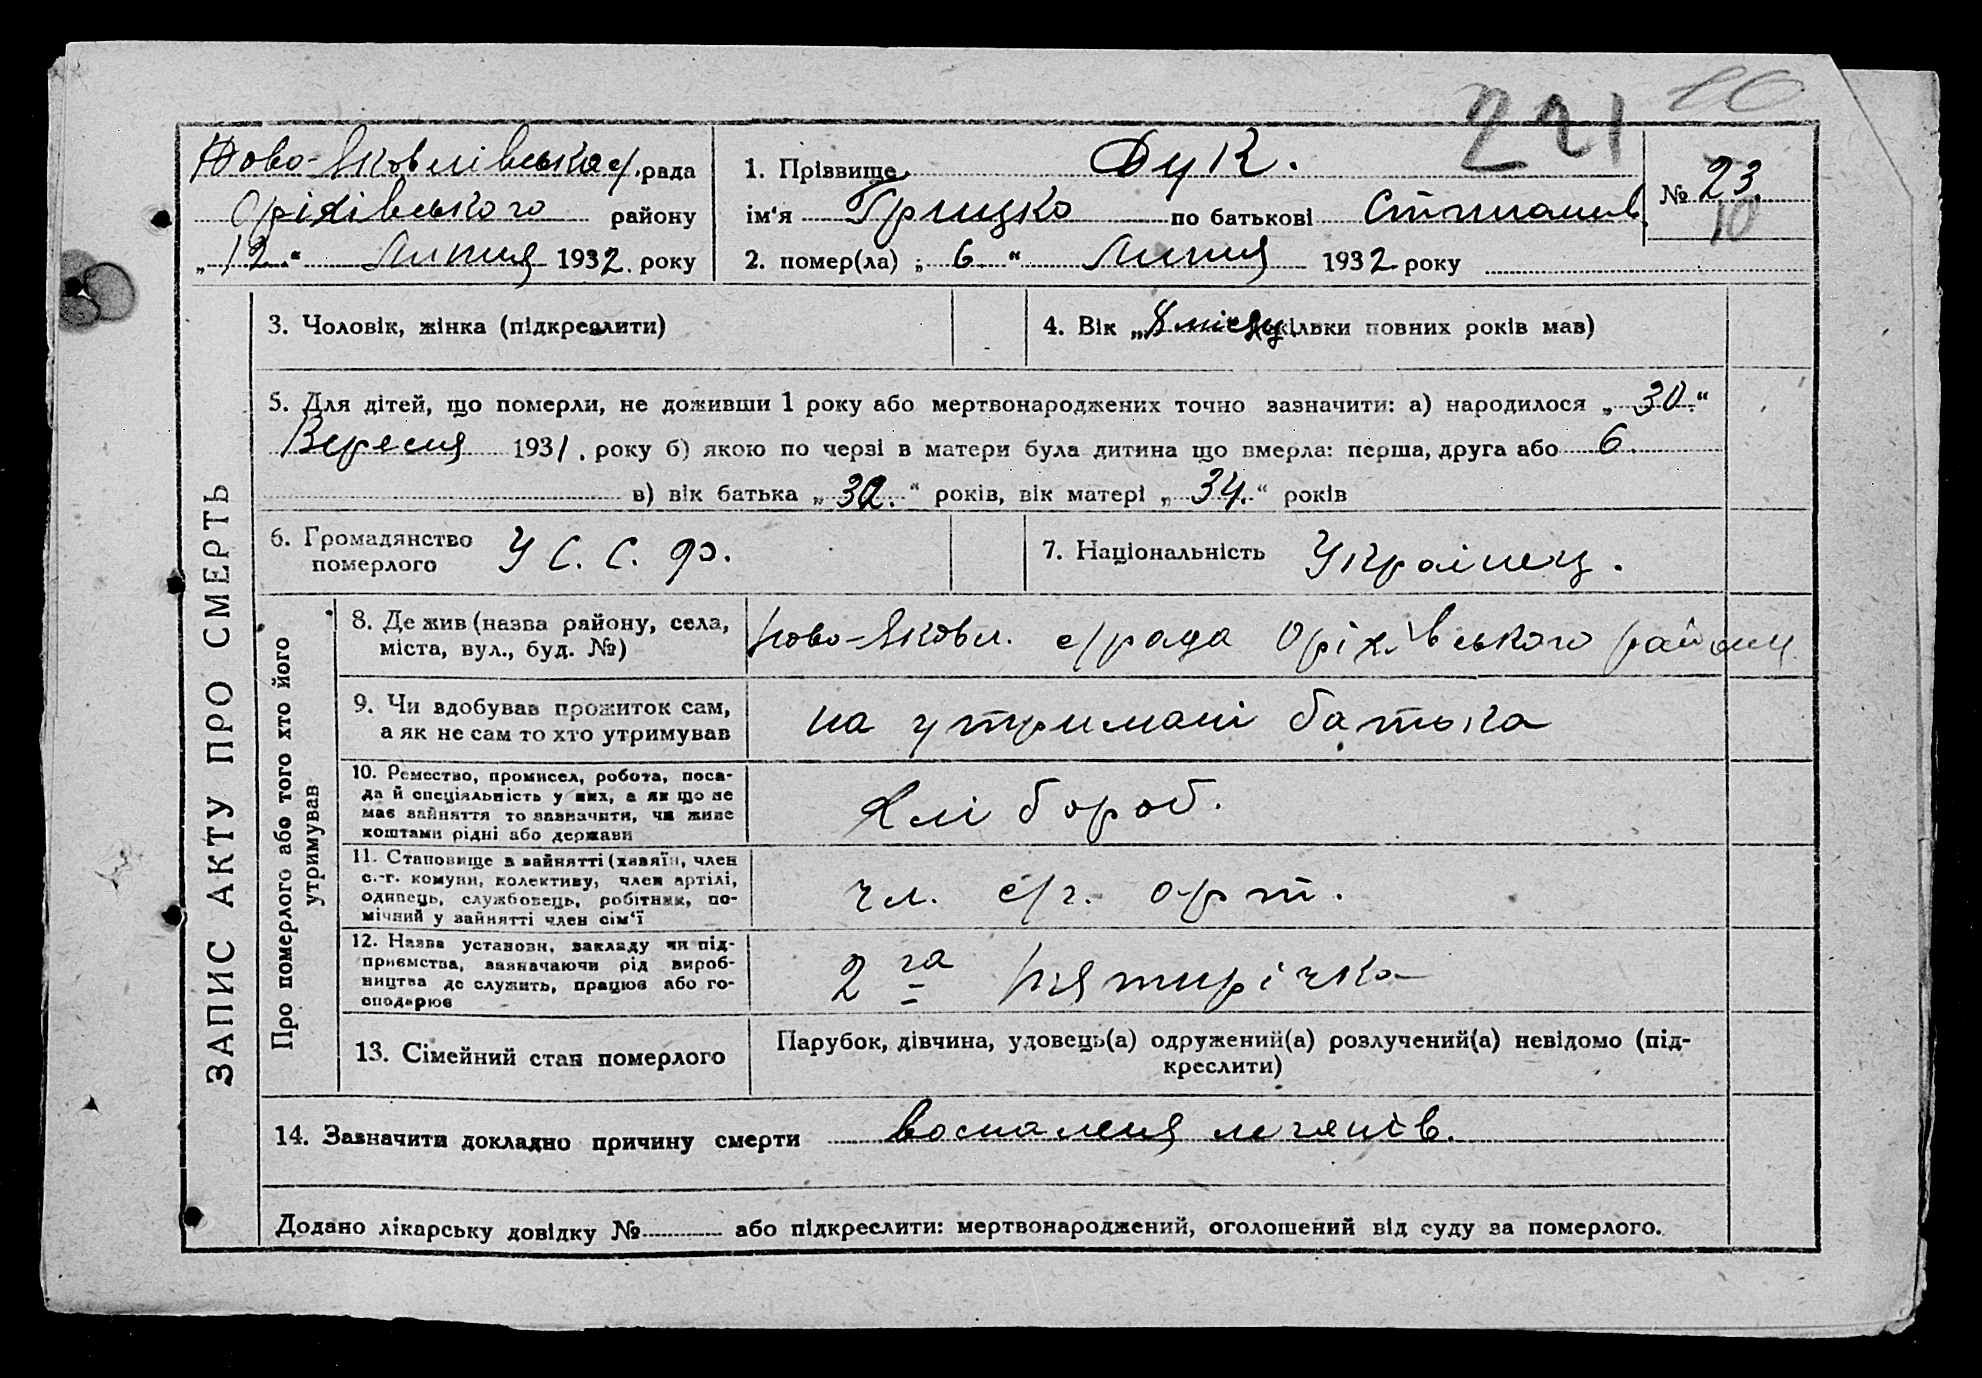 221
Ново-Яковлівська с/. рада
Оріхівського району
„12.“ Липня 1932. року
1. Пріввище Дук.
ім'я Грицко по батькові Степанов.
2. помер(ла) „6“ Липня 1932 року
№ 23.
10
ЗАПИС АКТУ ПРО СМЕРТЬ
3. Чоловік, жінка (підкреслити)
4. Вік „8 місяц. (скільки повних років мав)
5. Для дітей, що померли, не доживши 1 року або мертвонароджених точно зазначити: а) народилося „30.“
Вересня 1931. року б) якою по черзі в матери була дитина що вмерла: перша, друга або 6.
в) вік батька „32.“ років, вік матері „34.“ років
6. Громадянство
померлого У С. С. р.
7. Національність Украінец.
Про померлого або того хто його
утримував
8. Де жив (назва району, села,
міста, вул., буд. №)
Ново-Яковл. с/рада Оріхівського району
9. Чи вдобував прожиток сам,
а як не сам то хто утримував
на утримані батька
10. Ремество, промисел, робота, поса-
да й спеціяльність у них, а як що не
має зайняття то зазначити, чи живе
коштами рідні або держави
Хлібороб.
11. Становище в зайнятті (хазяїн, член
с.-г. комуни, колективу, член артілі,
одинець, службовець, робітник, по-
мічний у зайнятті член сім'ї
чл. с/г. арт.
12. Назва установи, закладу чи під-
приємства, зазначаючи рід вироб-
ництва де служить, працює або го-
сподарює
2га Пятирічка
13. Сімейний стан померлого
Парубок, дівчина, удовець(а) одружений(а) розлучений(а) невідомо (під-
креслити)
14. Зазначити докладно причину смерти воспаленя легенів.
Додано лікарську довідку № або підкреслити: мертвонароджений, оголошений від суду за померлого.